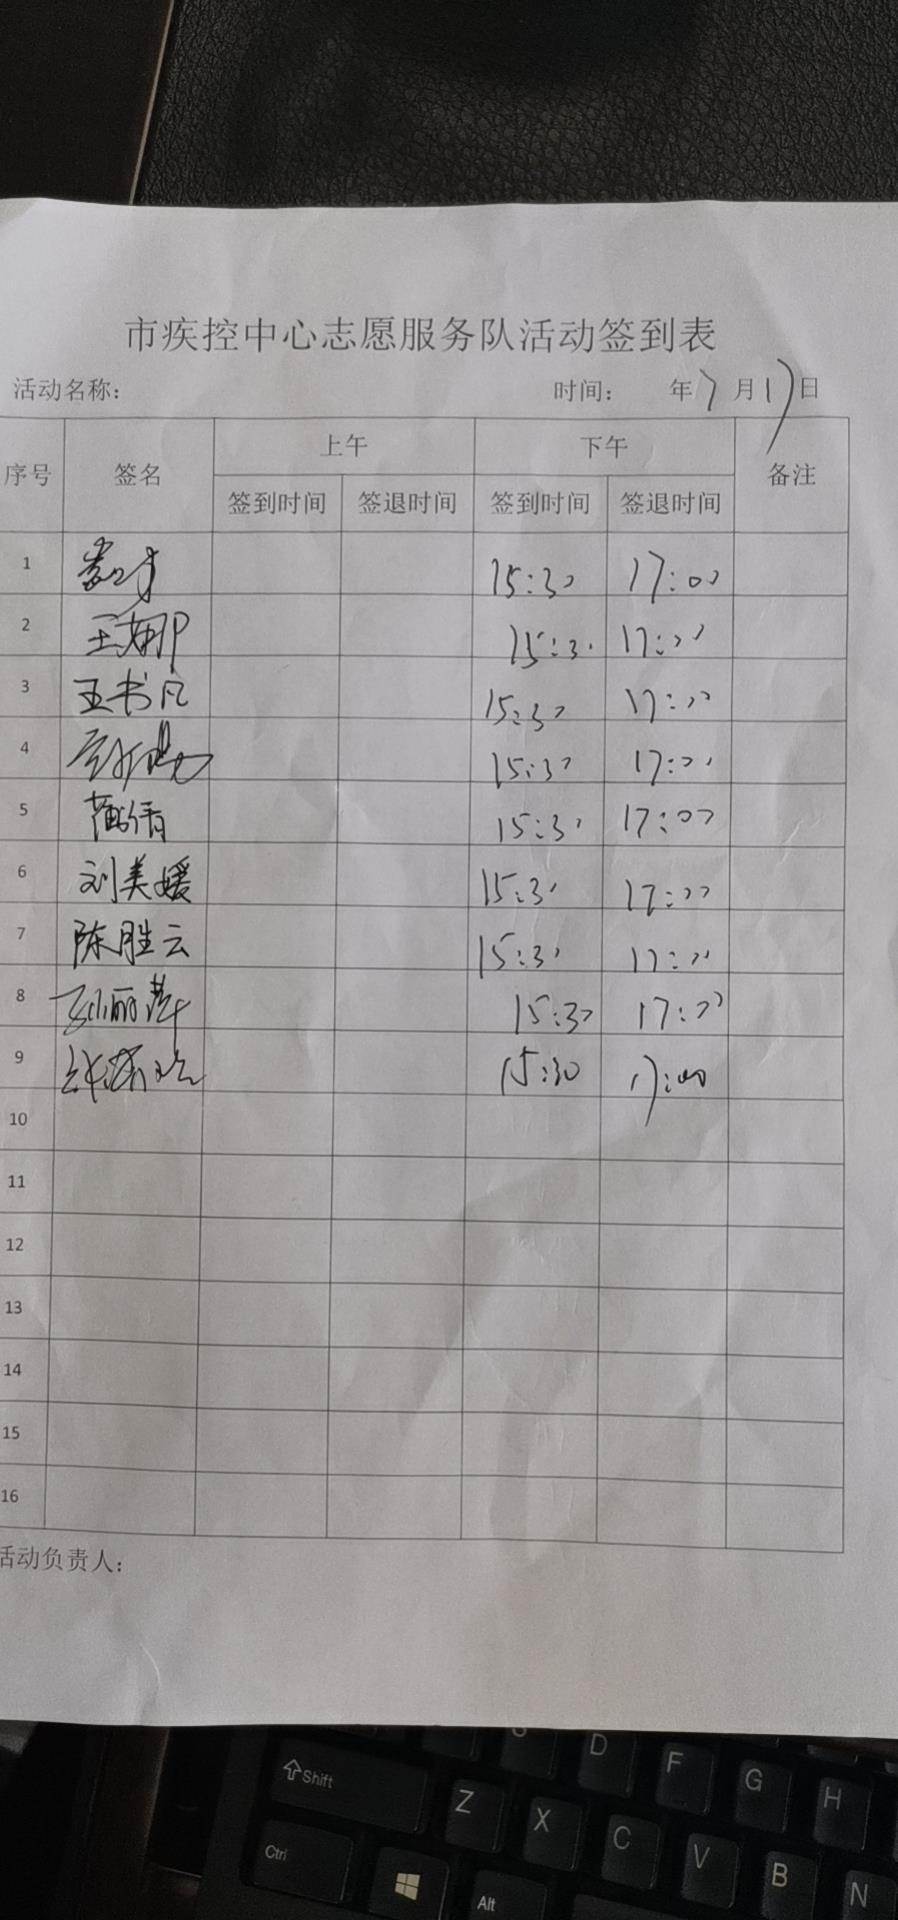 市疾控中心志愿服务队活动签到表
活动名称： 时间： 年7月17日
序号 签名 上午 下午 备注
签到时间 签退时间 签到时间 签退时间
1 15:30 17:00
2 王娜 15:30 17:00
3 王书凡 15:30 17:00
4 15:30 17:00
5 15:30 17:00
6 刘美媛 15:30 17:00
7 陈胜云 15:30 17:00
8 孙丽萍 15:30 17:00
9 15:30 17:00
10
11
12
13
14
15
16
活动负责人：
Shift
Z X C V B N
D F G H
Ctrl
Alt